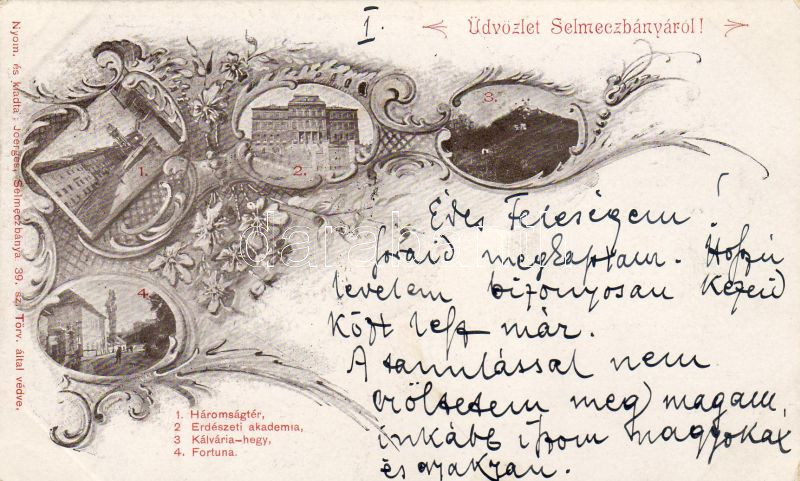 I.
Üdvözlet Selmeczbányáról!
Nyom. és kiadta: Joerges, Selmeczbánya 39. sz. Törv. által védve.
1.
2.
3.
4.
Édes Feleségem!
Soraid megkaptam. Hosszú
levelem bizonyosan kezeid
közt lesz már.
A tanulással nem
erőltetem meg magam,
inkább iszom nagyokat
és gyakran.
1. Háromságtér,
2 Erdészeti akademia,
3 Kálvária-hegy,
4. Fortuna.